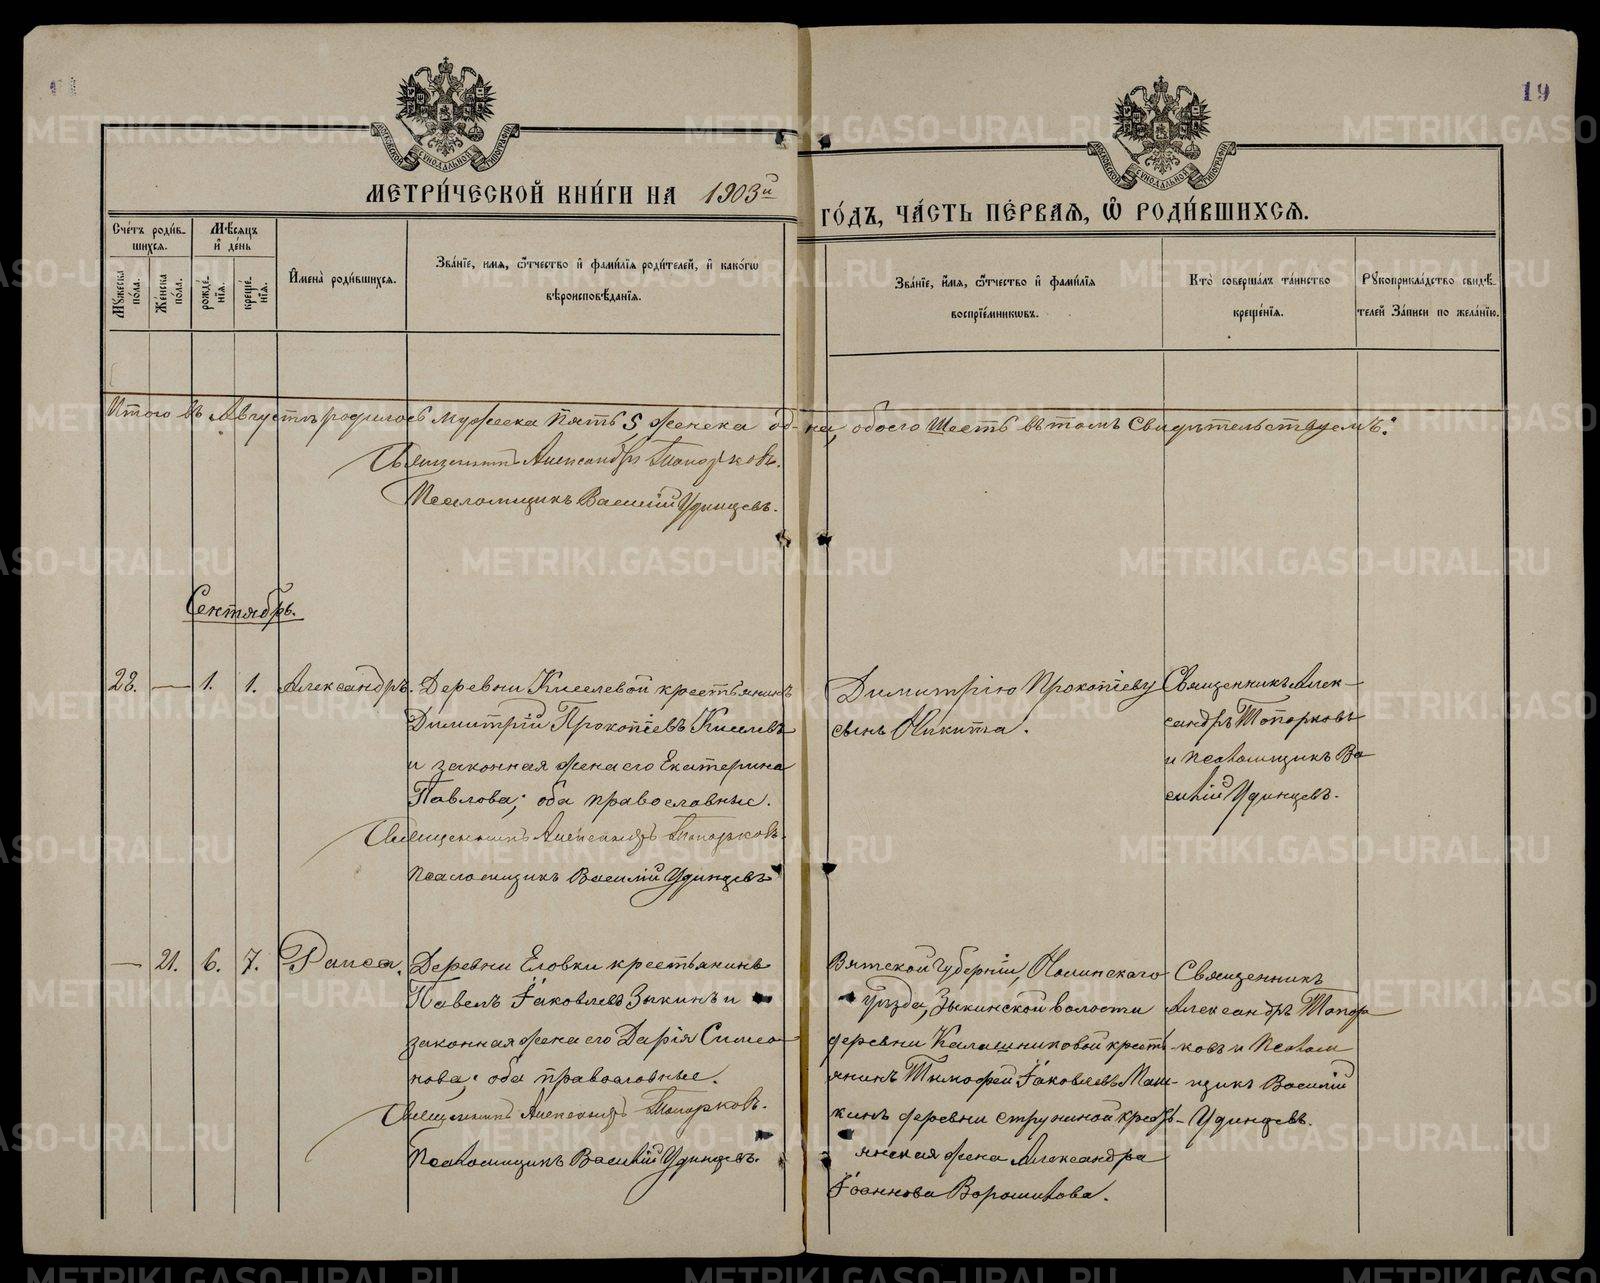 19
МЕТРИ́ЧЕСКОЙ КНИ́ГИ НА 1903й
ГО́ДЪ, ЧА́СТЬ ПЕ́РВАЯ, Ѽ РОДИ́ВШИХСЯ.
Сче́тъ роди́в-
шихся.
Мѣ́сяцъ
и де́нь
Му́жеска по́ла.
Же́нска по́ла.
рожде́-
нїя.
креще́-
нїя.
И́мена̀ роди́вшихся.
Зва́нїе, имя, ѻ҆́тчество и҆ фами́лїя роди́телей, и҆ како́гѡ
вѣроисповѣ́данїя.
Зва́нїе, и҆́мя, ѻ҆́тчество и҆ фами́лїя
воспрїе́мникѡвъ.
Кто̀ соверша́лъ та́инство
креще́нїя.
Рꙋкоприкла́дство свидѣ́-
телей за́писи по жела́нїю.
Итого въ Августѣ родилось мужеска пять 5 женска одна, обоего шесть въ томъ свидѣтельствуемъ:
Священникъ Александръ Топорковъ.
Псаломщикъ Василій Удинцевъ.
Сентябрь.
28. — 1. 1. Александръ. Деревни Киселевой крестьянинъ
Димитрій Прокопіевъ Киселевъ
и законная жена его Екатерина
Павлова; оба православные.
Священникъ Александръ Топорковъ.
Псаломщикъ Василій Удинцевъ
Димитрію Прокопіеву
сынъ Никита.
Священникъ Алек-
сандръ Топорковъ
и псаломщикъ Ва
силій Удинцевъ.
— 21. 6. 7. Раиса. Деревни Еловки крестьянинъ
Павелъ Іаковлевъ Зыкинъ и
законная жена его Дарія Симео-
нова; оба православные.
Священникъ Александръ Топорковъ.
Псаломщикъ Василій Удинцевъ.
Вятской губерніи, Нолинскаго
уѣзда, Зыкинской волости
деревни Калашниковой крестъ-
янинъ Тимофей Іаковлевъ
деревни Струниной кресть-
янская жена Александра
Іоаннова Ворошилова.
Священникъ
Александръ Топор
ковъ и Псалом
щикъ Василій
Удинцевъ.
METRIKI.GASO-URAL.RU